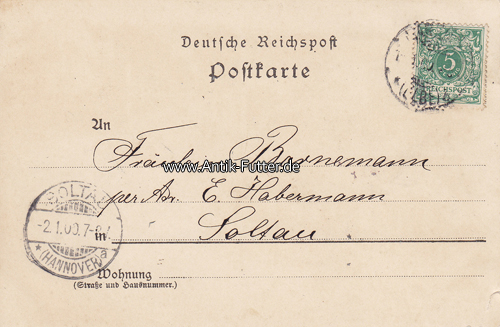 Deutsche Reichspost
Postkarte
5
REICHSPOST
(ELBE)
An
Fräulein Bornemann
www.Antik-Futter.de
per Adr. E. Habermann
in Soltau
SOLTAU
-2.1.00.7-8V
* (HANNOVER) a
Wohnung
(Straße und Hausnummer.)